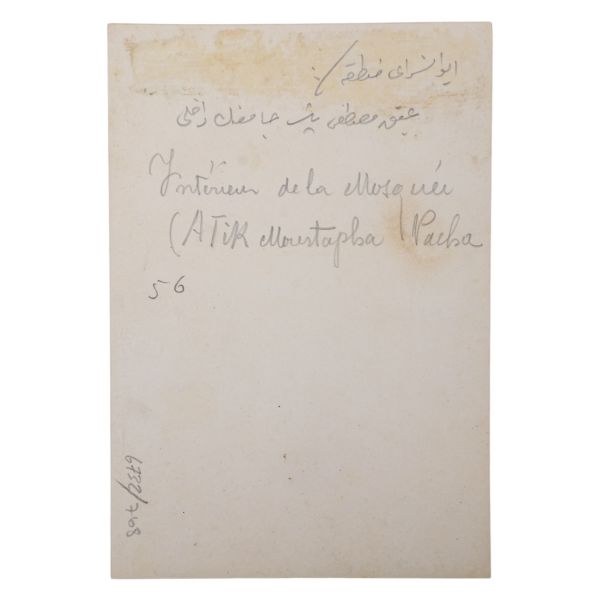 ایوانسرای منطقه
عتیق مصطفی پاشا جامعنك داخلی
Intérieur de la Mosquée
(ATiK Moustapha Pacha
56
6732/768